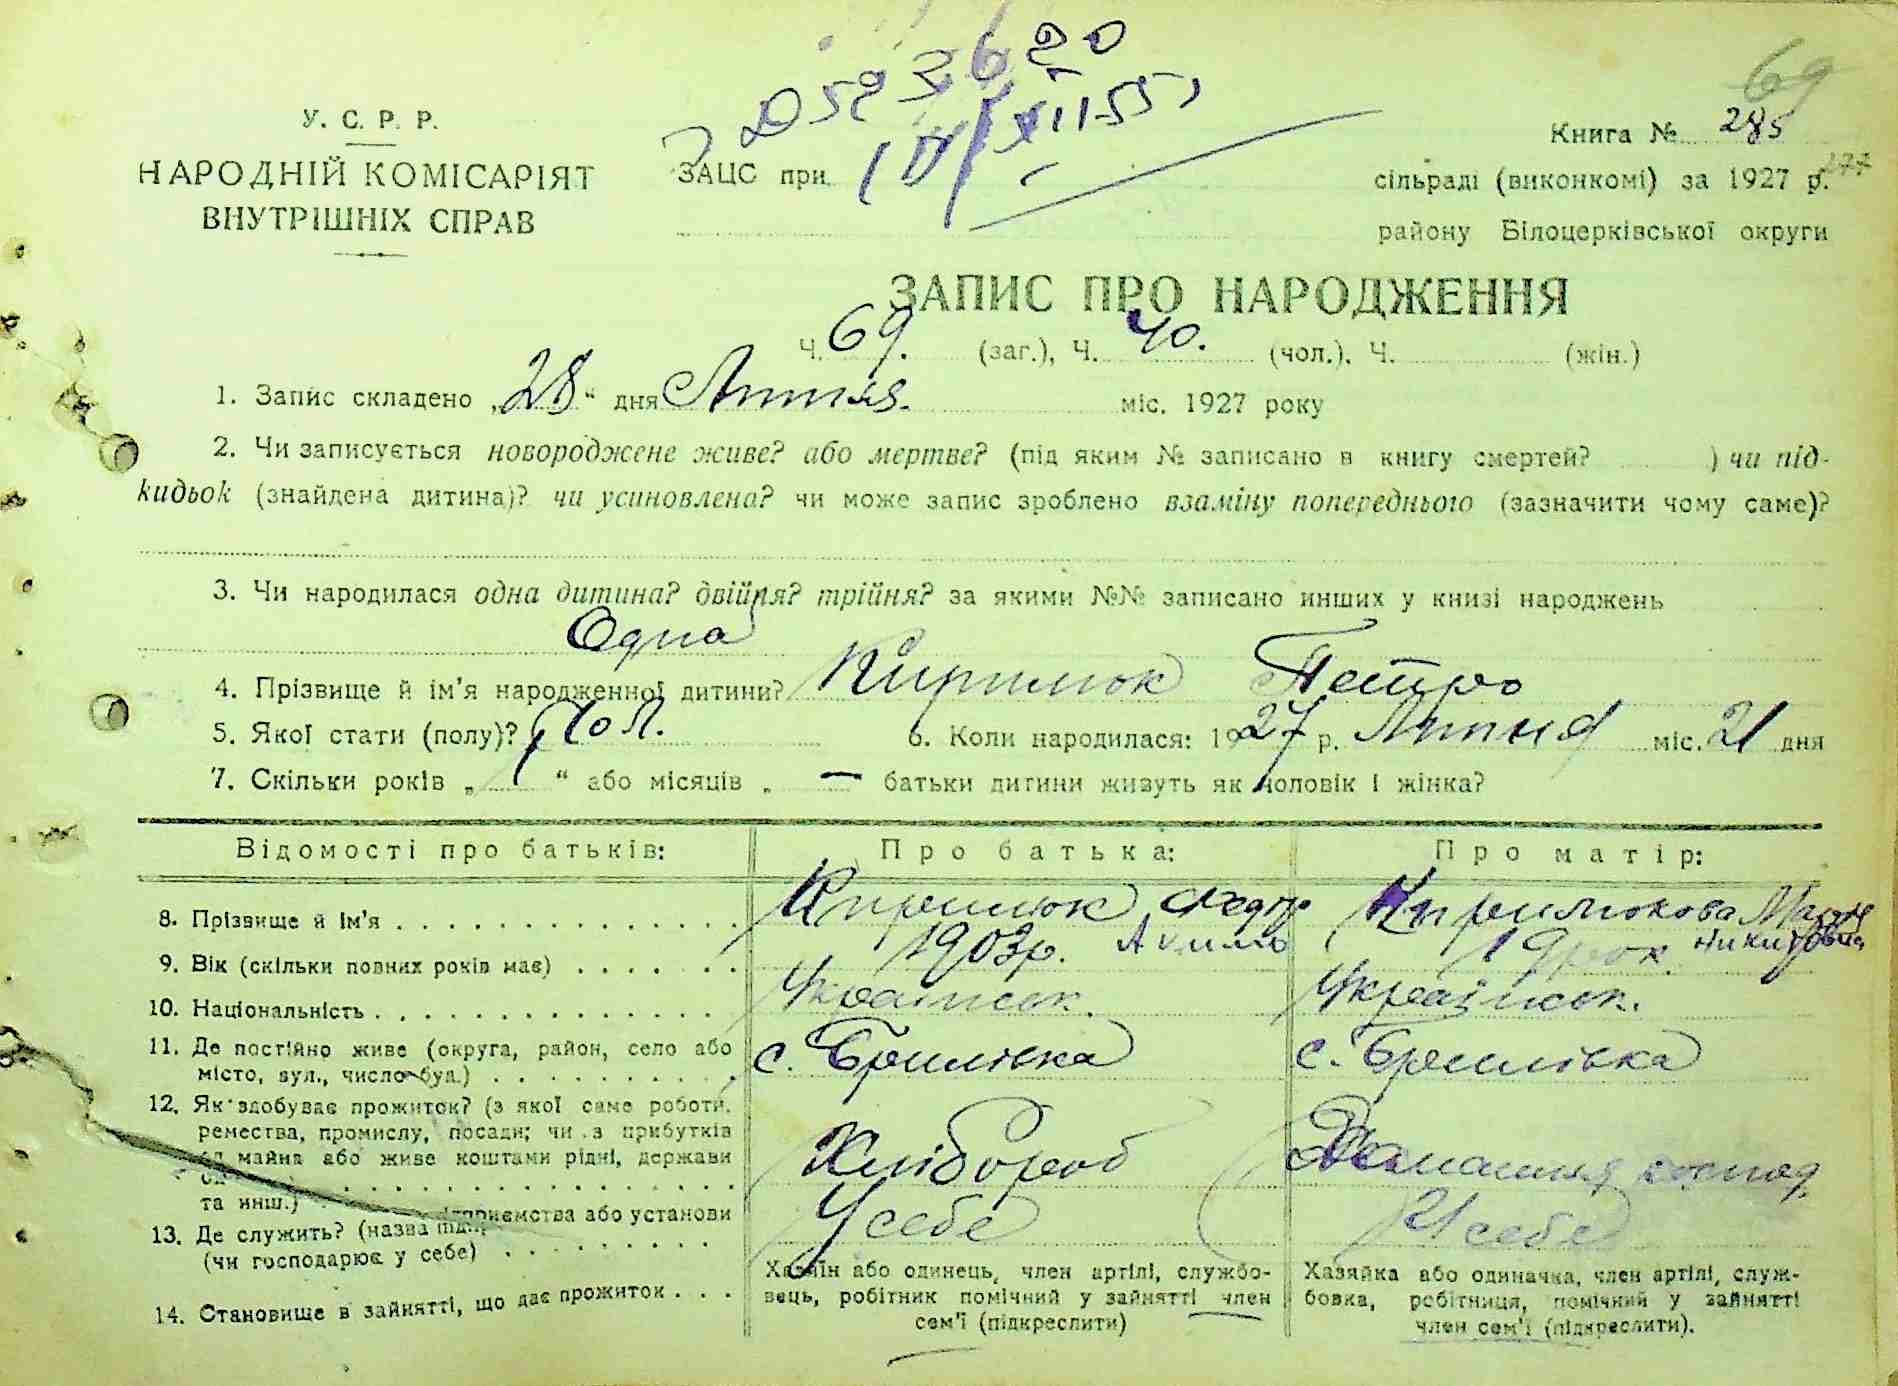 69
У. С. Р. Р.
НАРОДНІЙ КОМІСАРІЯТ
ВНУТРІШНІХ СПРАВ
ЗАЦС при
Книга № 285
сільраді (виконкомі) за 1927 р.
277
району Білоцерківської округи
ЗАПИС ПРО НАРОДЖЕННЯ
Ч. 69. (заг.), Ч. 40. (чол.), Ч. (жін.)
1. Запис складено „28“ дня Липня. міс. 1927 року
2. Чи записується новороджене живе? або мертве? (під яким № записано в книгу смертей? ) чи під-
кидьок (знайдена дитина)? чи усиновлена? чи може запис зроблено взаміну попереднього (зазначити чому саме)?
3. Чи народилася одна дитина? двійня? трійня? за якими №№ записано инших у книзі народжень
Одна
4. Прізвище й ім'я народженної дитини? Кирилюк Петро
5. Якої стати (полу)? Чол. 6. Коли народилася: 1927 р. Липня міс. 21 дня
7. Скільки років „1“ або місяців „ — батьки дитини живуть як чоловік і жінка?
Відомості про батьків: Про батька: Про матір:
8. Прізвище й ім'я Кирилюк Федір Кирилюкова
Никитовна
9. Вік (скільки повних років має) 1903р. 19 рок.
10. Національність Українськ. Українськ.
11. Де постійно живе (округа, район, село або
місто, вул., число буд.) с. Брилівка с. Брилівка
12. Як здобуває прожиток? (з якої саме роботи,
ремества, промислу, посади; чи з прибутків
майна або живе коштами рідні, держави
та инш.) Хлібороб Домашня господ.
13. Де служить? (назва підприємства або установи
(чи господарює у себе) У себе У себе
14. Становище в зайнятті, що дає прожиток
Хазяїн або одинець, член артілі, службо-
вець, робітник помічний у зайнятті член
сем'ї (підкреслити)
Хазяйка або одиначка, член артілі, служ-
бовка, робітниця, помічний у зайнятті
член сем'ї (підкреслити).